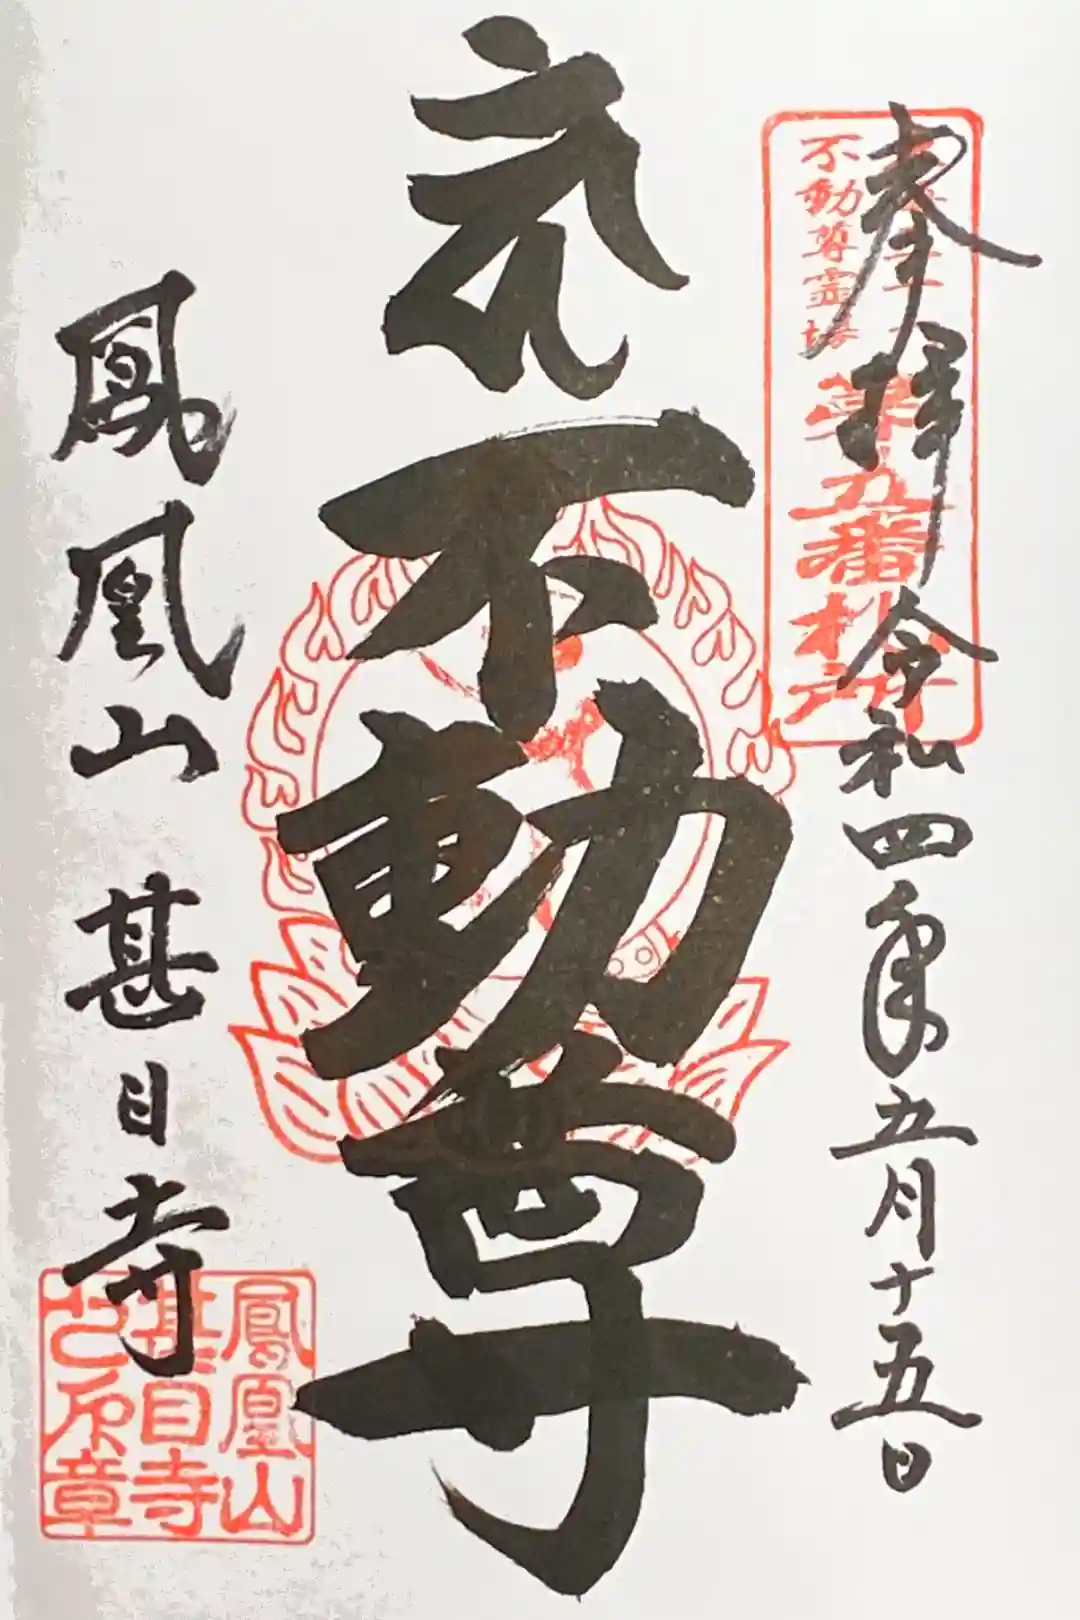 奉拝 令和四年五月十五日
不動尊霊場
第五番札所
不動尊
鳳凰山 甚目寺
鳳凰山
甚目寺
之印章